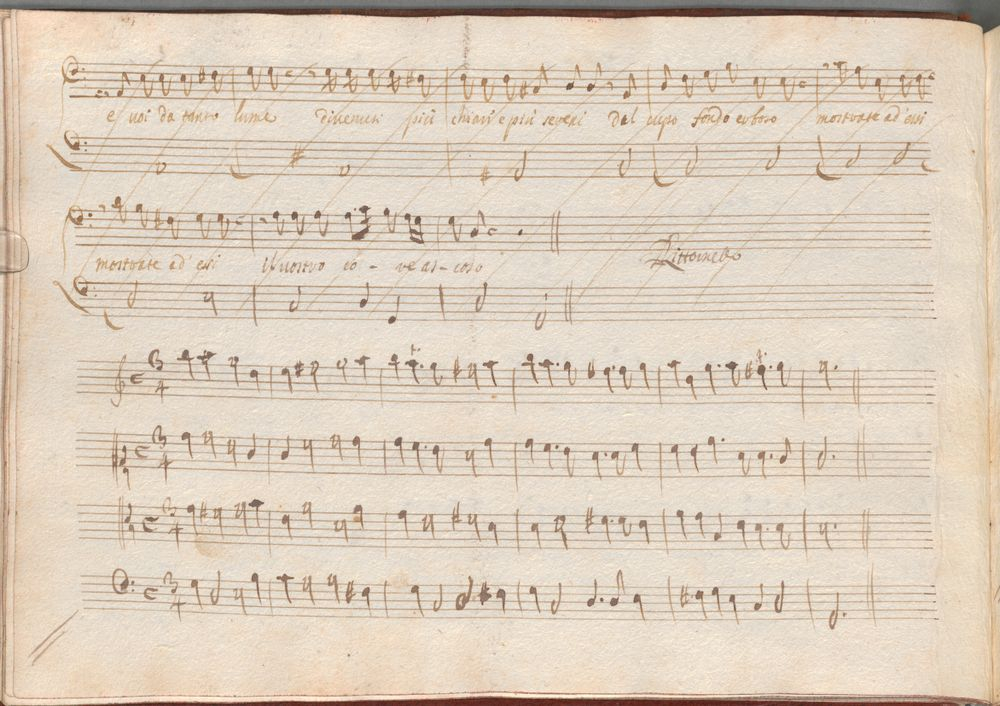 e voi da tanto lume divenuti più chiari e più sereni Dal cupo fondo erboso mostrate ad essi
mostrate ad essi il vostro co - re as - coso
Rittornello
C 3/4
C 3/4
C 3/4
C 3/4